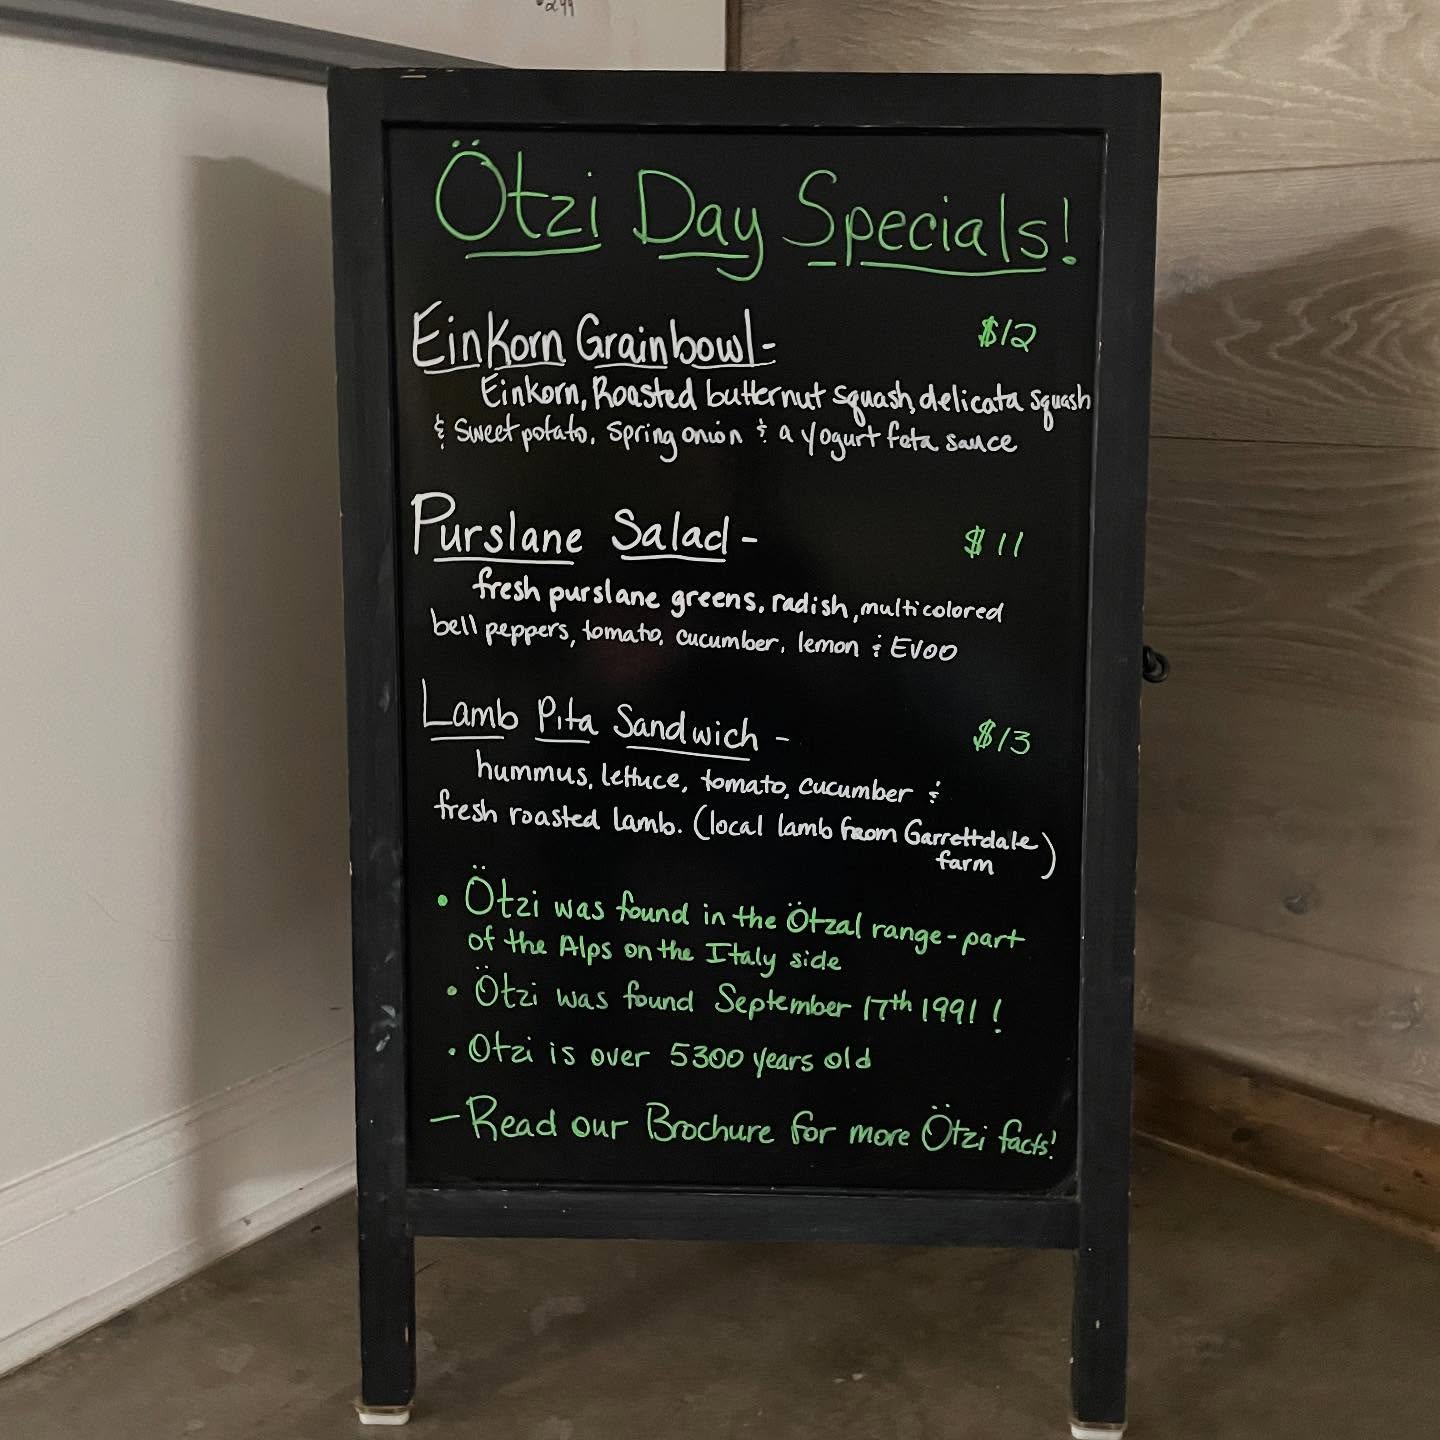 $299
Ötzi Day Specials!
Einkorn Grainbowl- $12
Einkorn, Roasted butternut squash, delicata squash
& Sweet potato, spring onion & a yogurt feta sauce
Purslane Salad - $11
fresh purslane greens, radish, multicolored
bell peppers, tomato, cucumber, lemon & EVOO
Lamb Pita Sandwich - $13
hummus, lettuce, tomato, cucumber &
fresh roasted lamb. (local lamb from Garrettdale
farm)
• Ötzi was found in the Ötzal range - part
of the Alps on the Italy side
• Ötzi was found September 17th 1991!
• Otzi is over 5300 years old
- Read our Brochure for more Ötzi facts!